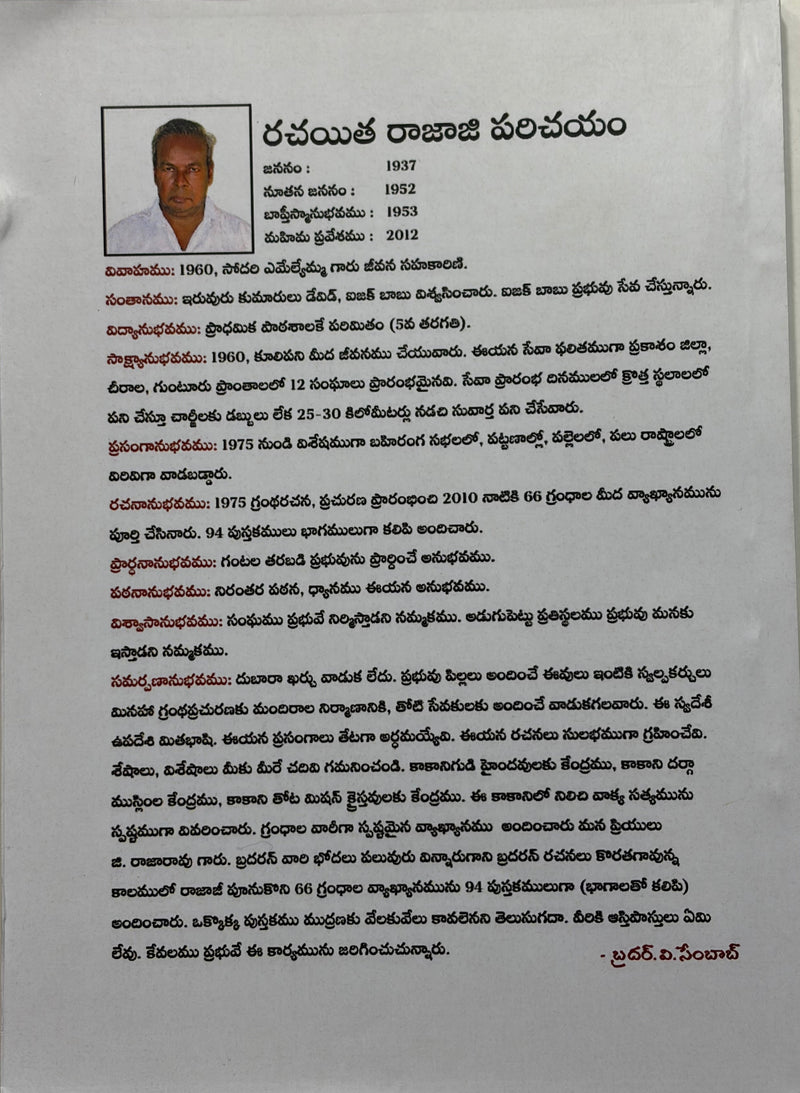 రచయిత రాజాజి పరిచయం
జననం : 1937
నూతన జననం : 1952
బాప్తీస్మానుభవము : 1953
మహిమ ప్రవేశము : 2012
వివాహము: 1960, సోదరి ఎమేల్యేమ్మ గారు జీవన సహకారిణి.
సంతానము: ఇరువురు కుమారులు డేవిడ్, ఐజక్ బాబు విశ్వసించారు. ఐజక్ బాబు ప్రభువు సేవ చేస్తున్నారు.
విద్యానుభవము: ప్రాధమిక పాఠశాలకే పరిమితం (5వ తరగతి).
సాక్ష్యానుభవము: 1960, కూలిపని మీద జీవనము చేయువారు. ఈయన సేవా ఫలితముగా ప్రకాశం జిల్లా,
చీరాల, గుంటూరు ప్రాంతాలలో 12 సంఘాలు ప్రారంభమైనవి. సేవా ప్రారంభ దినములలో క్రొత్త స్థలాలలో
పని చేస్తూ చార్జీలకు డబ్బులు లేక 25-30 కిలోమీటర్లు నడచి సువార్త పని చేసేవారు.
ప్రసంగానుభవము: 1975 నుండి విశేషముగా బహిరంగ సభలలో, పట్టణాల్లో, పల్లెలలో, పలు రాష్ట్రాలలో
విరివిగా వాడబడ్డారు.
రచనానుభవము: 1975 గ్రంథరచన, ప్రచురణ ప్రారంభించి 2010 నాటికి 66 గ్రంధాల మీద వ్యాఖ్యానమును
పూర్తి చేసినారు. 94 పుస్తకములు భాగములుగా కలిపి అందిచారు.
ప్రార్ధనానుభవము: గంటల తరబడి ప్రభువును ప్రార్ధించే అనుభవము.
పఠనానుభవము: నిరంతర పఠన, ధ్యానము ఈయన అనుభవము.
విశ్వాసానుభవము: సంఘము ప్రభువే నిర్మిస్తాడని నమ్మకము. అడుగుపెట్టు ప్రతిస్థలము ప్రభువు మనకు
ఇస్తాడని నమ్మకము.
సమర్పణానుభవము: దుబారా ఖర్చు వాడుక లేదు. ప్రభువు పిల్లలు అందించే ఈవులు ఇంటికి స్వల్పకర్చులు
మినహా గ్రంథప్రచురణకు మందిరాల నిర్మాణానికి, తోటి సేవకులకు అందించే వాడుకగలవారు. ఈ స్వదేశీ
ఉపదేశి మితభాషి. ఈయన ప్రసంగాలు తేటగా అర్ధమయ్యేవి. ఈయన రచనలు సులభముగా గ్రహించేవి.
శేషాలు, విశేషాలు మీకు మీరే చదివి గమనించండి. కాకానిగుడి హైందవులకు కేంద్రము, కాకాని దర్గా
ముస్లింల కేంద్రము, కాకాని తోట మిషన్ క్రైస్తవులకు కేంద్రము. ఈ కాకానిలో నిలిచి వాక్య సత్యమును
స్పష్టముగా వివరించారు. గ్రంధాల వారీగా స్పష్టమైన వ్యాఖ్యానము అందించారు మన ప్రియులు
జి. రాజారావు గారు. బ్రదరన్ వారి భోదలు పలువురు విన్నారుగాని బ్రదరన్ రచనలు కొరతగావున్న
కాలములో రాజాజీ పూనుకొని 66 గ్రంధాల వ్యాఖ్యానమును 94 పుస్తకములుగా (భాగాలతో కలిపి)
అందించారు. ఒక్కొక్క పుస్తకము ముద్రణకు వేలకువేలు కావలెనని తెలుసుగదా. వీరికి ఆస్తిపాస్తులు ఏమి
లేవు. కేవలము ప్రభువే ఈ కార్యమును జరిగించుచున్నారు.
- బ్రదర్. వి. సేంబాబ్